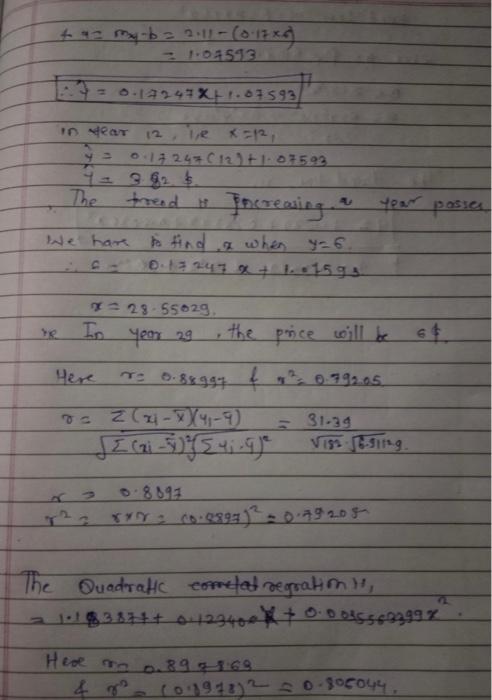 & a = my-b = 2.11 - (0.17×6)
= 1.07593
∴ ŷ = 0.17247x + 1.07593
in year 12, i.e x=12,
ŷ = 0.17247(12) + 1.07593
ŷ = $
The trend is Increasing year passes
We have to find x when y=6.
∴ 6 = 0.17247x + 1.07593
x = 28.55029.
In year 29, the price will be 6$.
Here r = 0.88997 & r² = 0.79205
r = Σ(xi - x̄)(yi - ȳ) / √Σ(xi - x̄)² √Σyi - ȳ)² = 31.39 / √182 · √6.91129
r = 0.8897
r² = r×r = (0.8897)² = 0.79205
The Quadratic regration is,
= + + 0.0035563399x².
Here r = 0.897869
& r² = (0.8978)² = 0.806044.